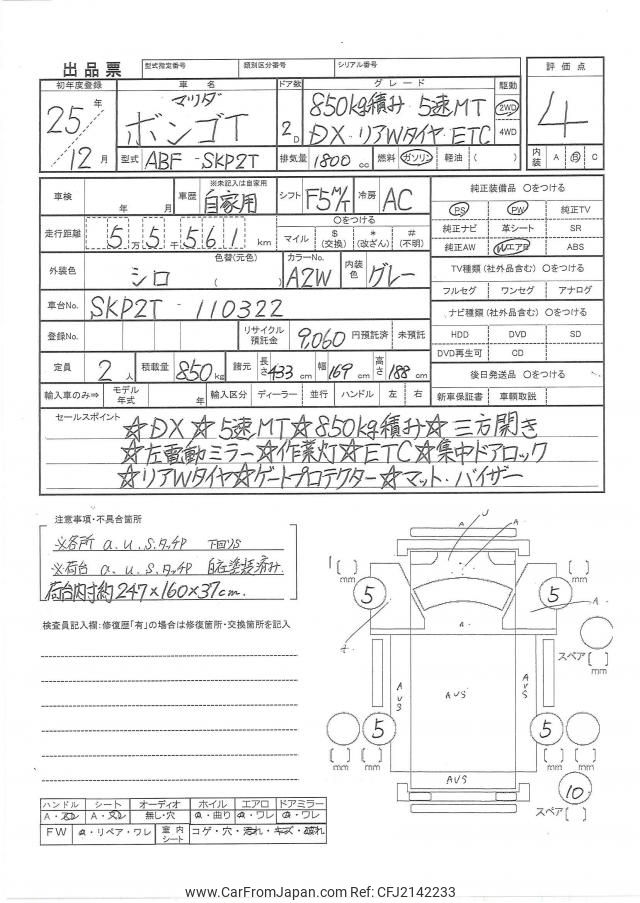 出品票 型式指定番号 類別区分番号 シリアル番号
初年度登録 車名 ドア数 グレード 駆動 評価点
25年 マツダ 850kg積み 5速MT 2WD 4
12月 ボンゴT 2D DX・リアWタイヤ・ETC 4WD
型式 ABF - SKP2T 排気量 1800 cc 燃料 ガソリン 軽油 ( ) 内装 A B C
車検 年 月 車歴 ※未記入は自家用 自家用 シフト F5M/T 冷房 AC 純正装備品 〇をつける
走行距離 5万5千561km 〇をつける PS PW 純正TV
マイル $(交換) *(改ざん) #(不明) 純正ナビ 革シート SR
外装色 シロ 色替(元色) ( カラーNo. A2W 内装色 グレー 純正AW WエアB ABS
TV種類(社外品含む) 〇をつける
車台No. SKP2T - 110322 フルセグ ワンセグ アナログ
ナビ種類(社外品含む) 〇をつける
登録No. リサイクル預託金 9,060 円預託済 未預託 HDD DVD SD
DVD再生可 CD
定員 2人 積載量 850kg 諸元 長さ433cm 幅169cm 高さ188cm 後日発送品 〇をつける
輸入車のみ⇒ モデル年式 年 輸入区分 ディーラー 並行 ハンドル 左 右 新車保証書 車輌取説
セールスポイント
☆DX☆5速MT☆850kg積み☆三方開き
☆左電動ミラー☆作業灯☆ETC☆集中ドアロック
☆リアWタイヤ☆ゲートプロテクター☆マット・バイザー
注意事項・不具合箇所
※各所 a.u.s.タッチP 下回りS
※荷台 a.u.s.タッチP 自在塗装済み.
荷台内寸約247×160×37cm.
検査員記入欄:修復歴「有」の場合は修復箇所・交換箇所を記入
A U A
[ ] mm [ ] mm
5 5
A A
スペア [ ] mm
AUS AUS AUS
5 5
[ ] mm [ ] mm [ ] mm [ ] mm
AUS
10
スペア [ ]
ハンドル シート オーディオ ホイル エアロ ドアミラー
A・スレ A・スレ 無し・穴 a・曲り a・ワレ a・ワレ
FW a・リペア・ワレ 室内シート コゲ・穴・汚れ・キズ・破れ
www.CarFromJapan.com Ref: CFJ2142233